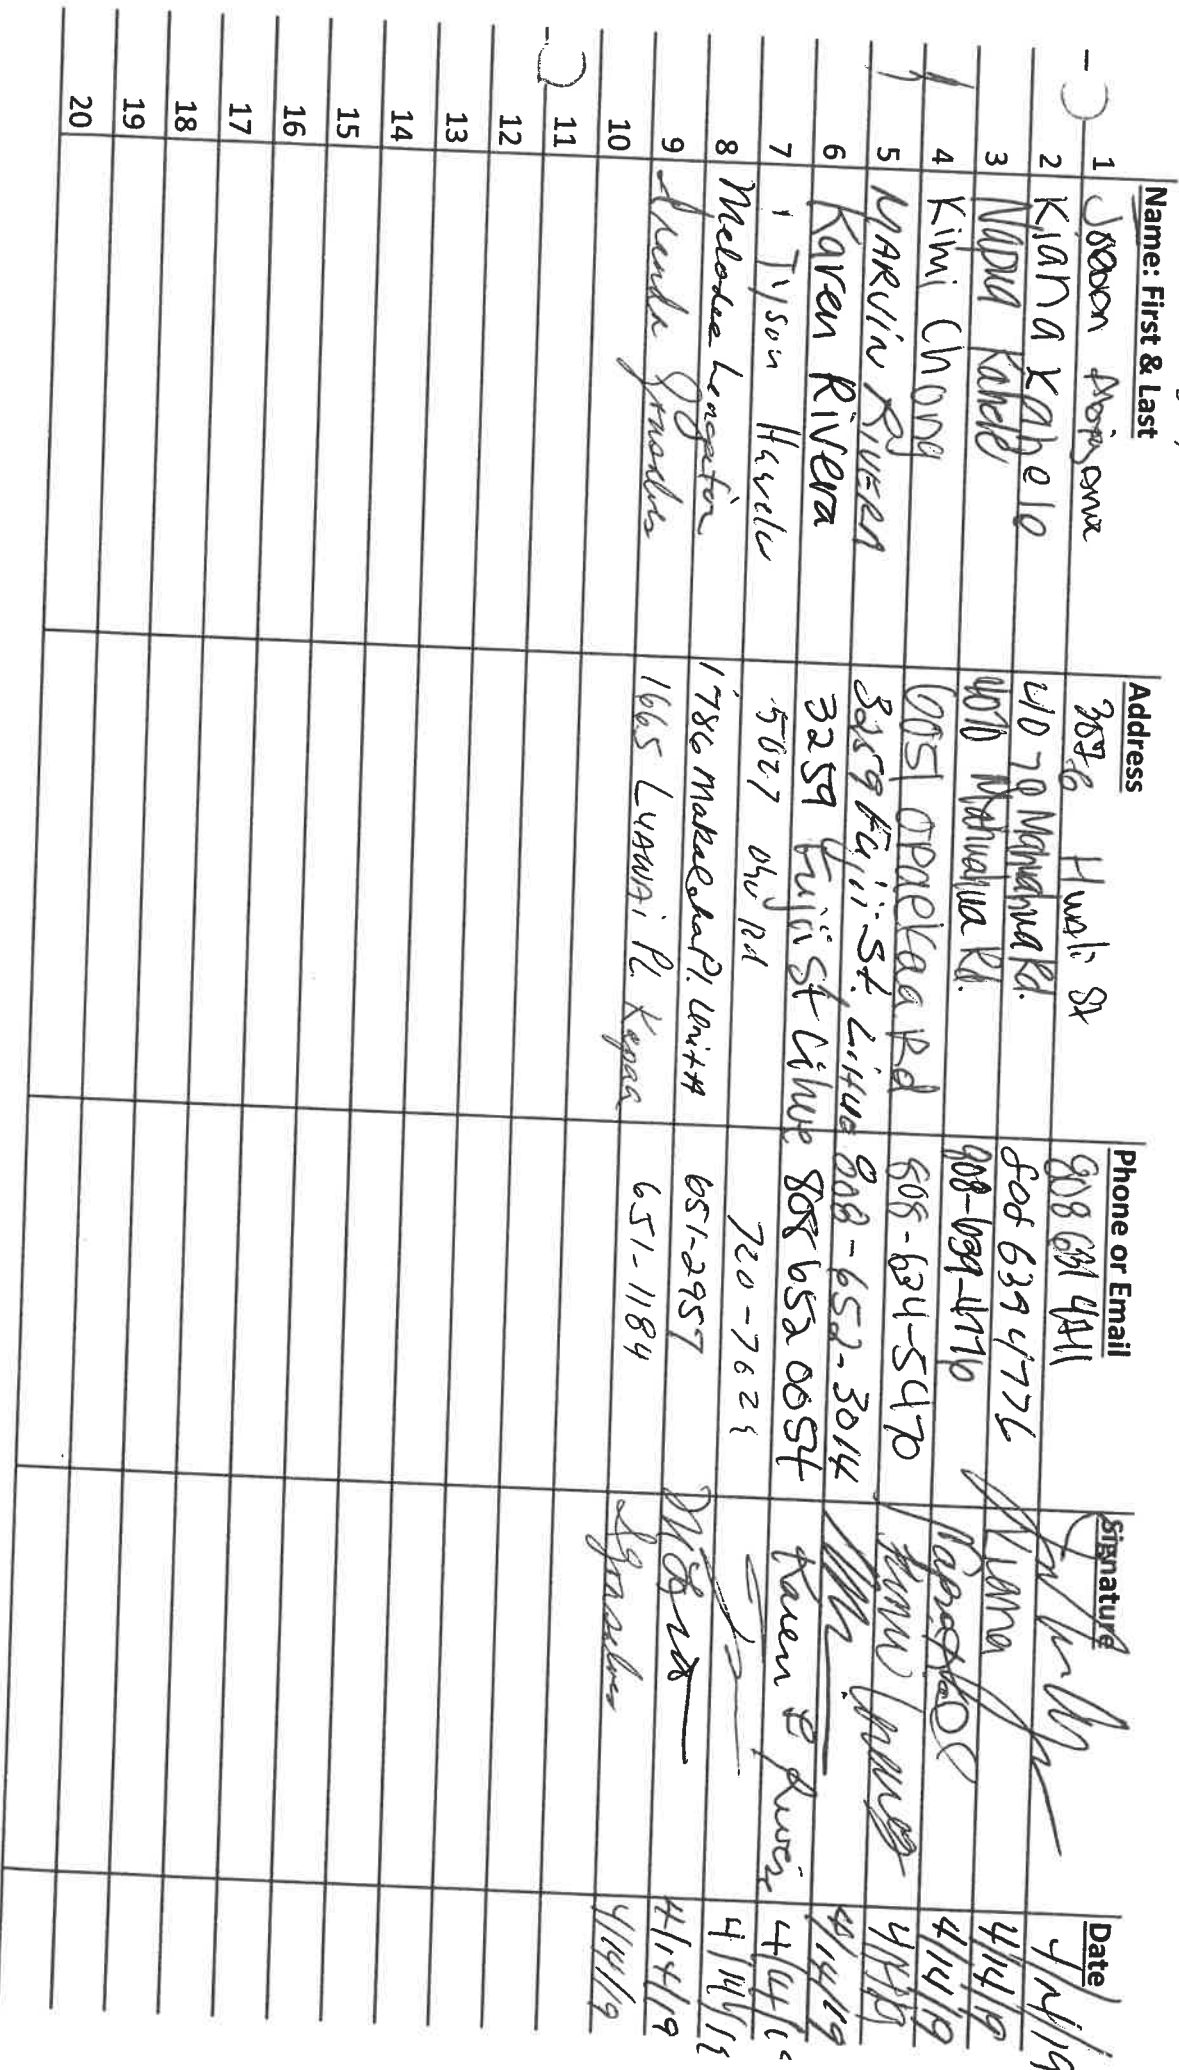 Name: First & Last Address Phone or Email Signature Date
1 Jason 3076 Hwali St 808 631 4A11 4/14/19
2 Kiana Kahelo 4070 Manuahua Rd. 808 639 4776 Kiana 4/14/19
3 Napua Kahelo 4070 Manuahua Rd. 808-639-4776 4/14/19
4 Kimi Chong 6051 Opaekaa Rd 808-634-5470 Kimi Chong 4/14/19
5 MARVIN RIVERA 3259 Fujii St. Lihue 808-652-3014 4/14/19
6 Karen Rivera 3259 Fujii St Lihue 808 652 0054 Karen E Rivera 4/14/19
7 Tyson 5027 Ohu Rd 720-7624 4/14/19
8 Melodee 1786 Makaleha Pl. Unit A 651-2957 4/14/19
9 1665 LYAWAi Pl. Kapaa 651-1184 4/14/19
10
11
12
13
14
15
16
17
18
19
20